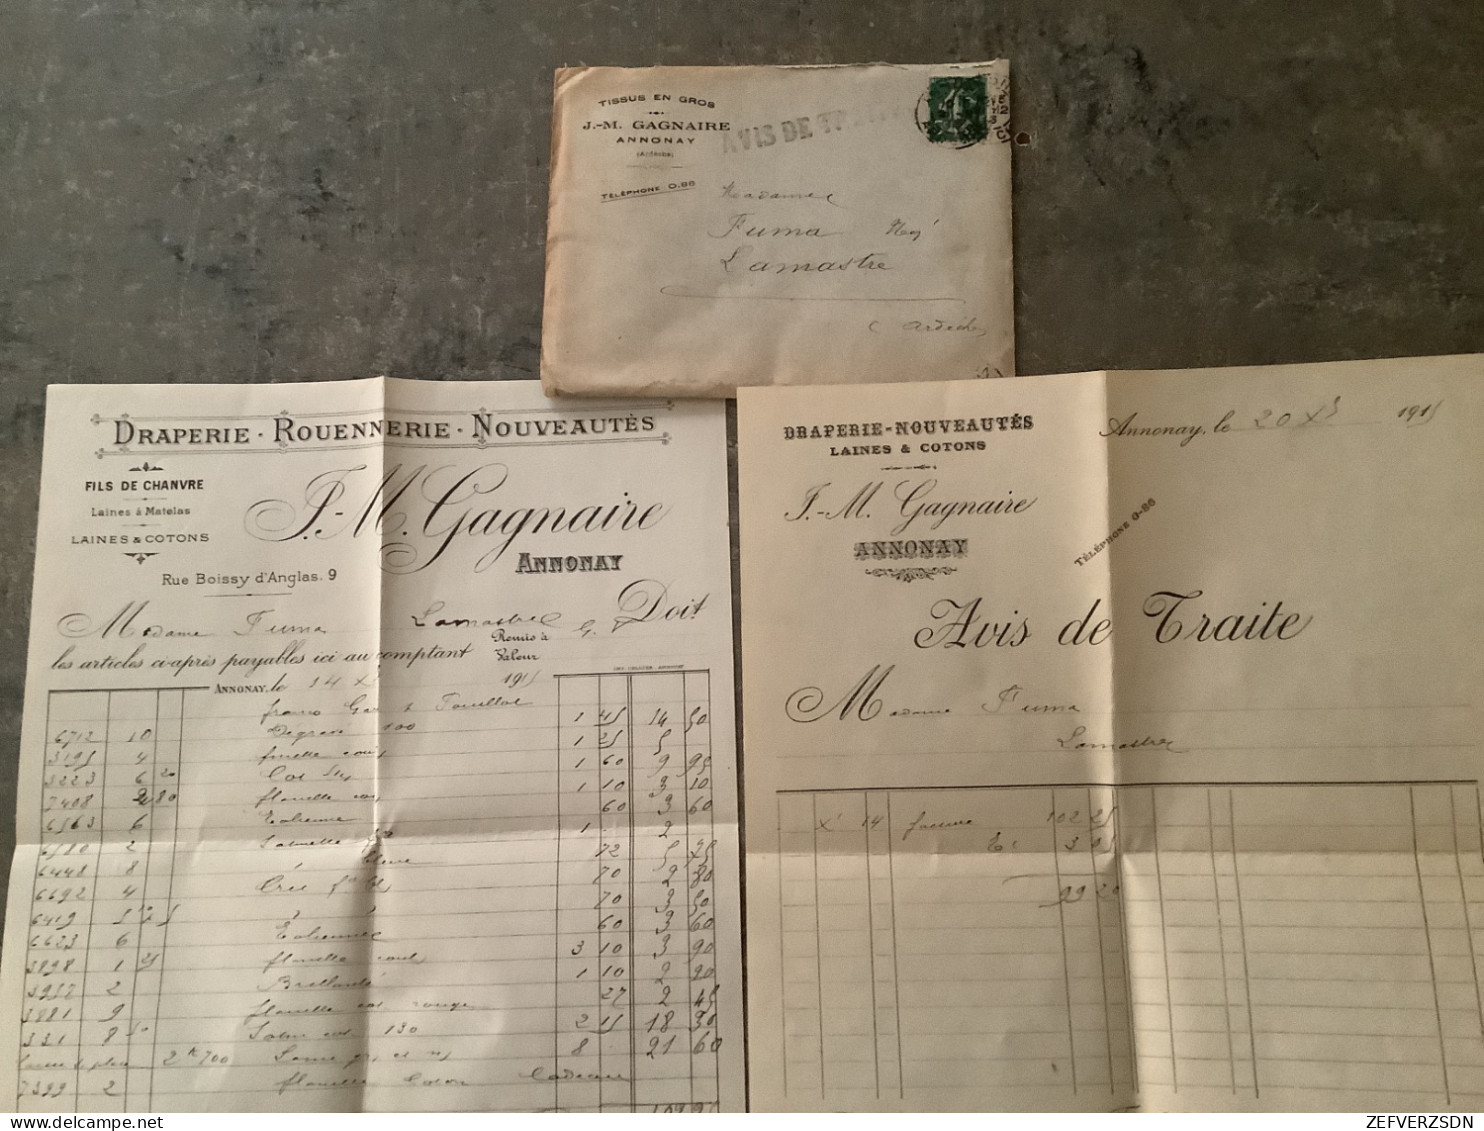 TISSUS EN GROS
J.-M. GAGNAIRE
ANNONAY
(ARDÈCHE)
TÉLÉPHONE 0.86
AVIS DE TRAITE
Madame
Fuma Neg
Lamastre
(Ardèche)
DRAPERIE · ROUENNERIE · NOUVEAUTÉS
FILS DE CHANVRE
Laines à Matelas
LAINES & COTONS
J.-M. Gagnaire
ANNONAY
Rue Boissy d'Anglas. 9
Madame Fuma Lamastre Doit
Remis à
les articles ci-après payables ici au comptant Valeur
ANNONAY, le 14 Xbre 1915
6712 10 Degravé 100 1 45 14 50
3195 4 finette 1 25 5
3223 6 20 1 60 9 95
7408 2 80 flanelle 1 10 3 10
6563 6 Eolienne 60 3 60
6510 2 1 2
6448 8 72 5 75
6692 4 70 2 80
6419 5 25 70 3 50
6623 6 Eolienne 60 3 60
3898 1 25 flanelle 3 10 3 90
3957 2 Brillanté 1 10 2 20
3881 9 flanelle rouge 27 2 45
331 8 50 130 2 15 18 30
2 k 700 Laine 8 21 60
7399 2 flanelle Coton Cadeau
DRAPERIE-NOUVEAUTÉS
LAINES & COTONS
J.-M. Gagnaire
ANNONAY
Annonay, le 20 Xbre 1915
TÉLÉPHONE 0-86
Avis de Traite
Madame Fuma
Lamastre
X 14 facture 102 25
Es 3 05
99 20
ZEFVERZSDN